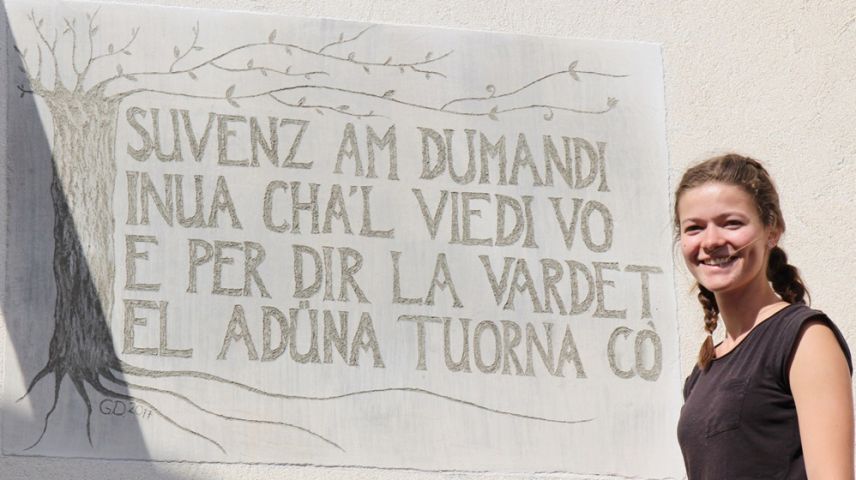 SUVENZ AM DUMANDI
INUA CHA'L VIEDI VO
E PER DIR LA VARDET
EL ADÜNA TUORNA CÒ
G.D. 2017